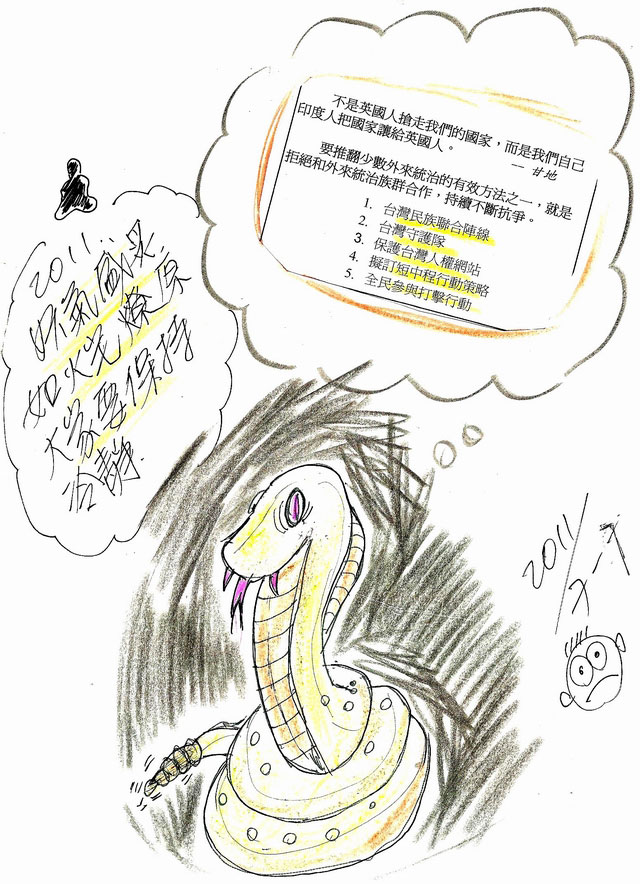 不是英國人搶走我們的國家，而是我們自己
印度人把國家讓給英國人。
— 甘地
要推翻少數外來統治的有效方法之一，就是
拒絕和外來統治族群合作，持續不斷抗爭。
1. 台灣民族聯合陣線
2. 台灣守護隊
3. 保護台灣人權網站
4. 擬訂短中程行動策略
5. 全民參與打擊行動
2011
如火
燎原
大家要保持
冷靜
2011/